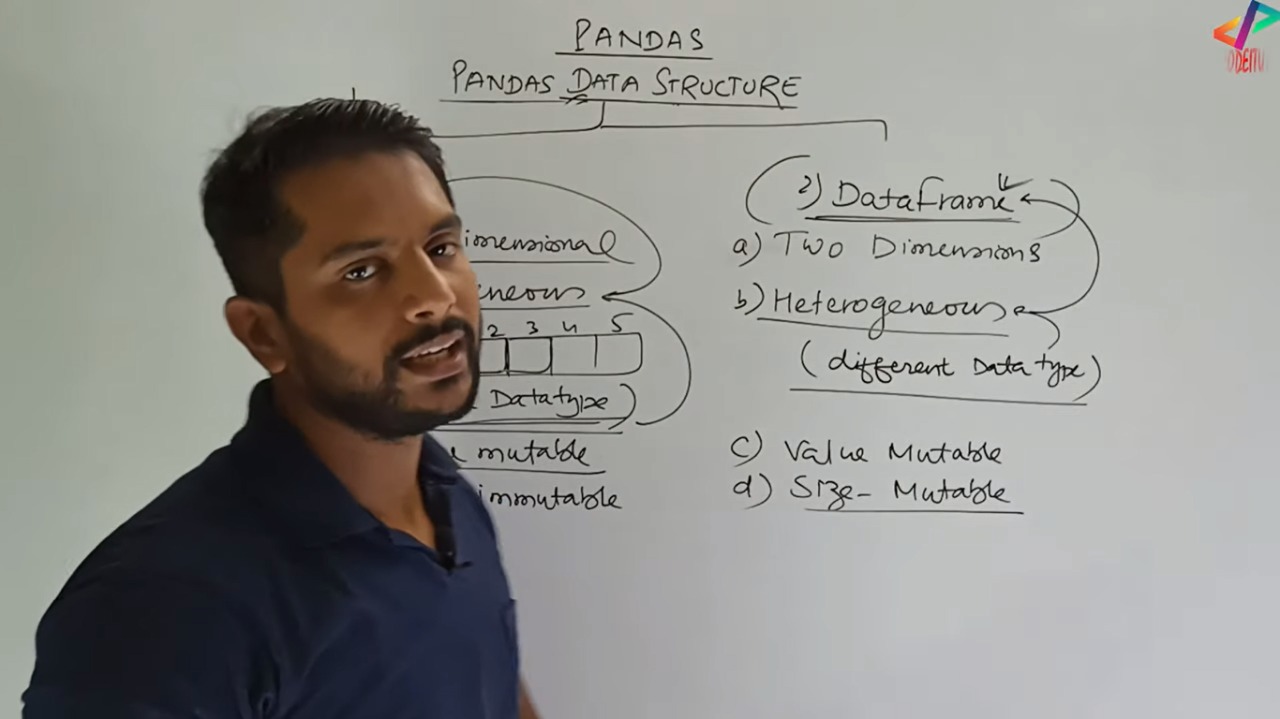 PANDAS
PANDAS DATA STRUCTURE
imensional
neous
2 3 4 5
Datatype)
mutable
immutable
2) DataFrame
a) Two Dimensions
b) Heterogeneous
(different Data type)
c) Value Mutable
d) Size- Mutable